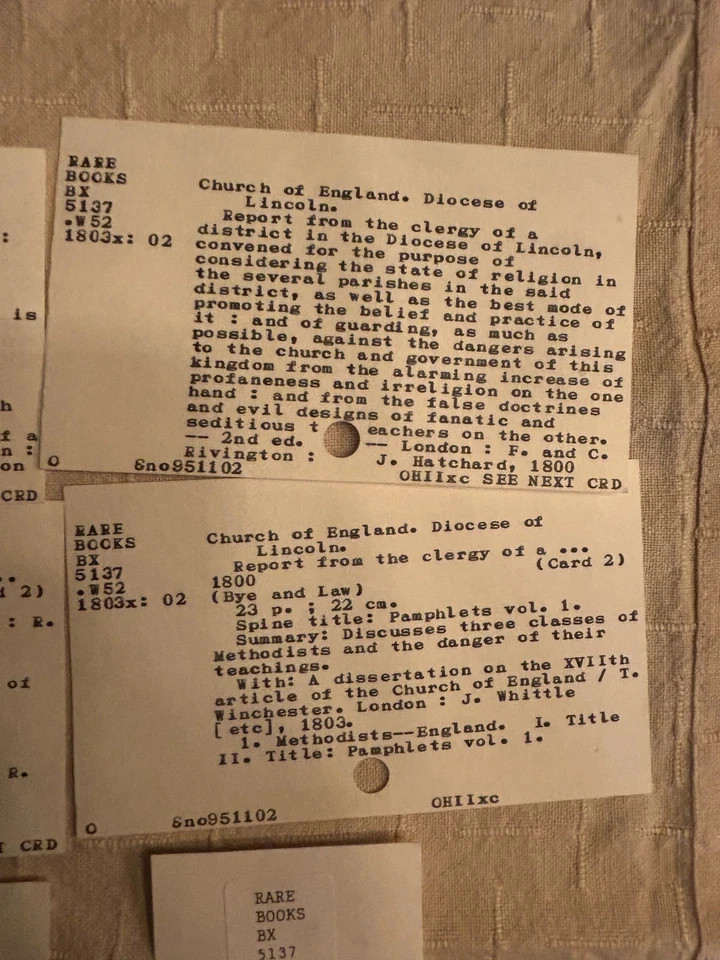 RARE
BOOKS
BX
5137
.W52
1803x: 02
Church of England. Diocese of
Lincoln.
Report from the clergy of a
district in the Diocese of Lincoln,
convened for the purpose of
considering the state of religion in
the several parishes in the said
district, as well as the best mode of
promoting the belief and practice of
it : and of guarding, as much as
possible, against the dangers arising
to the church and government of this
kingdom from the alarming increase of
profaneness and irreligion on the one
hand : and from the false doctrines
and evil designs of fanatic and
seditious t eachers on the other.
-- 2nd ed. -- London : F. and C.
Rivington : J. Hatchard, 1800
O &no951102 OHIIxc SEE NEXT CRD
RARE
BOOKS
BX
5137
.W52
1803x: 02
Church of England. Diocese of
Lincoln.
Report from the clergy of a ...
1800 (Card 2)
(Bye and Law)
23 p. ; 22 cm.
Spine title: Pamphlets vol. 1.
Summary: Discusses three classes of
Methodists and the danger of their
teachings.
With: A dissertation on the XVIIth
article of the Church of England / T.
Winchester. London : J. Whittle
[etc], 1803.
1. Methodists--England. I. Title
II. Title: Pamphlets vol. 1.
O &no951102 OHIIxc
:
is
h
f a
n :
on
CRD
2)
: R.
of
R.
CRD
RARE
BOOKS
BX
5137